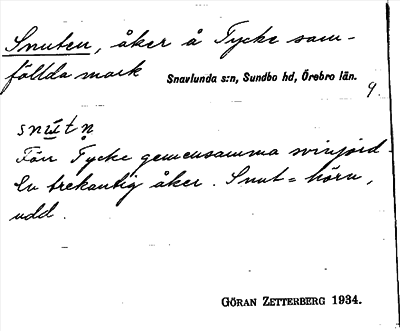 Snuten, åker å Tycke sam-
fällda mark
Snavlunda s:n, Sundbo hd, Örebro län.
9.
snu̲t n̥
Förr Tycke gemensamma svinjord.
En trekantig åker. Snut = hörn,
udd.
GÖRAN ZETTERBERG 1934.